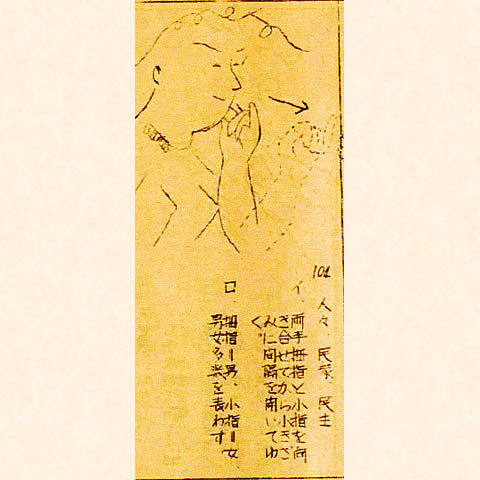 104 人々、民衆、民主
イ、両手拇指と小指を向
き合せてから小きざ
みに間隔を開いてゆ
く。
ロ、拇指＝男、小指＝女
男女多衆を表わす